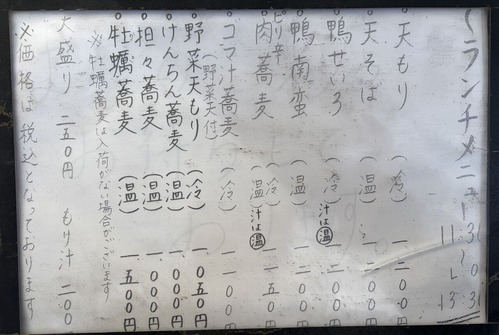 〜ランチメニュー〜 11:30〜L.O 13:30
○天もり(冷)一二〇〇円
○天そば(温)一二〇〇円
○鴨せいろ(冷)汁は温 一二〇〇円
○鴨南蛮(温)一二〇〇円
○ピリ辛肉蕎麦(冷)(温)汁は温 一一五〇円
○ゴマ汁蕎麦(野菜天付)(冷)一一〇〇円
○野菜天もり(冷)一〇五〇円
○けんちん蕎麦(温)一〇〇〇円
○担々蕎麦(温)一〇〇〇円
○牡蠣蕎麦(温)一五〇〇円
※牡蠣蕎麦は入荷がない場合がございます
大盛り 二五〇円 もり汁 二〇〇
※価格は税込となっております